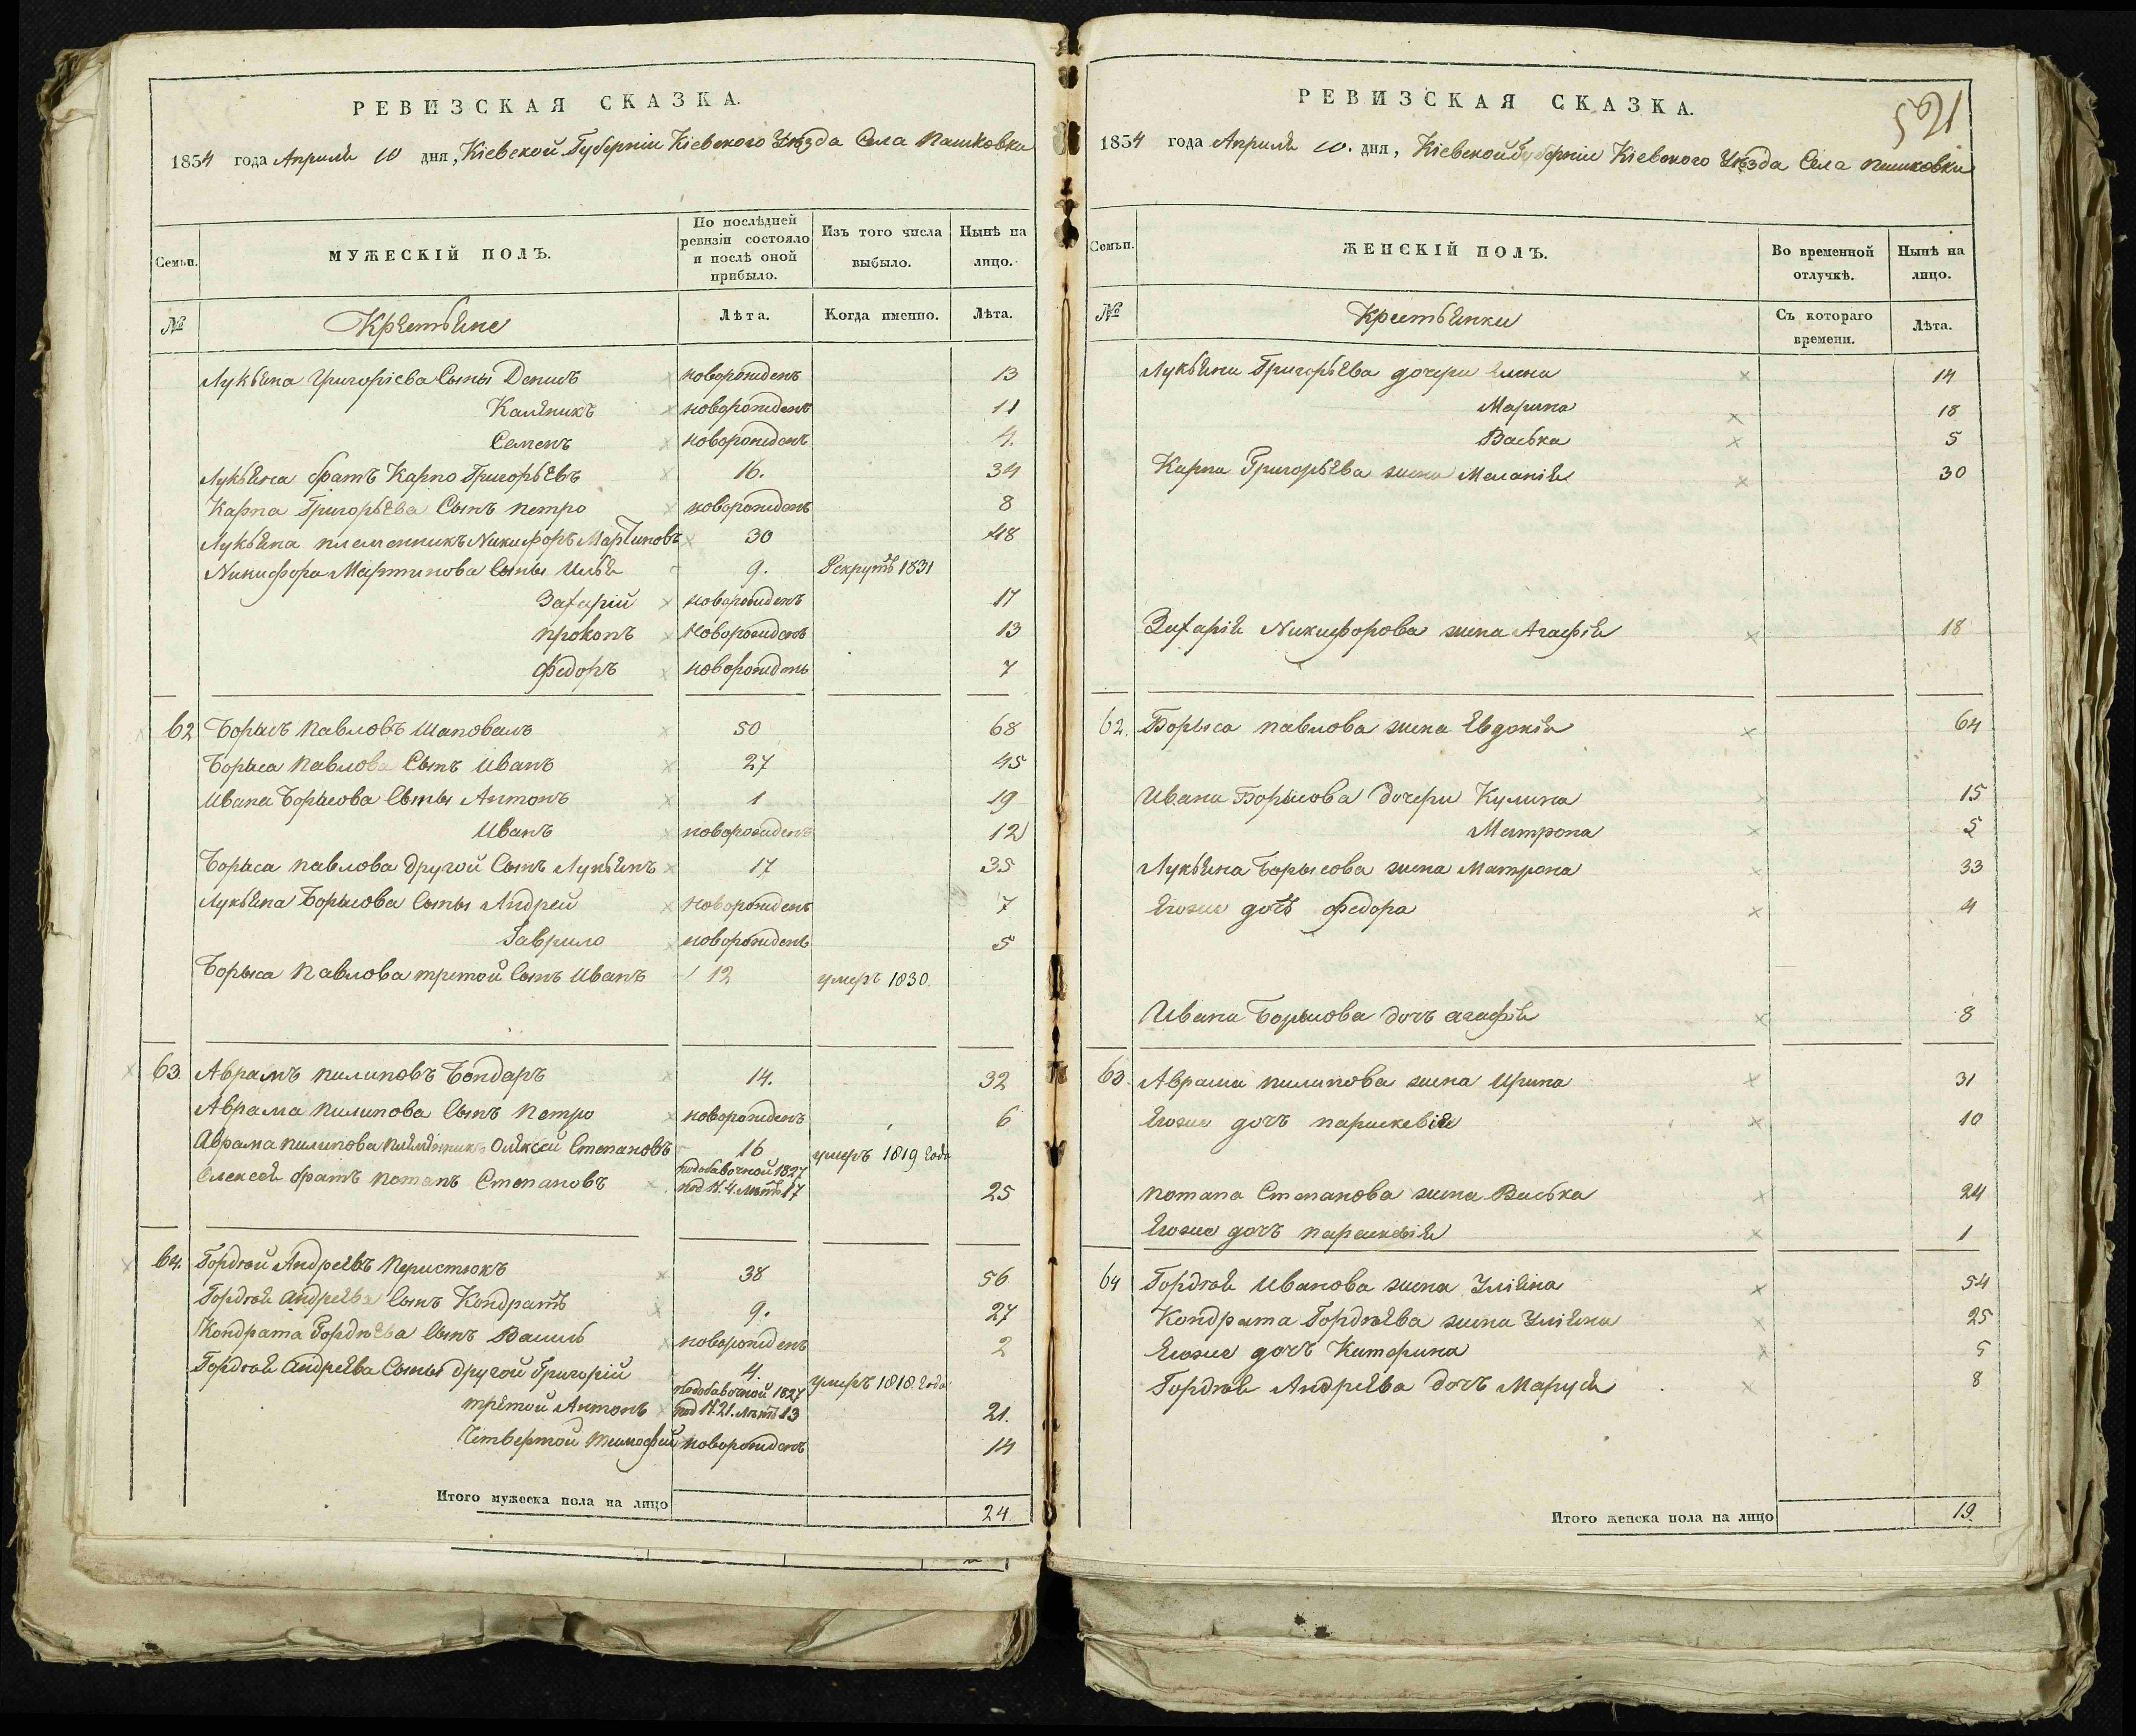 РЕВИЗСКАЯ СКАЗКА.
1834 года Апреля 10 дня, Кіевской Губерніи Кіевского Уѣзда Села Пашковки
Семьи.
МУЖЕСКІЙ ПОЛЪ.
По послѣдней ревизіи состояло и послѣ оной прибыло.
Изъ того числа выбыло.
Нынѣ на лицо.
№
Крестьяне
Лѣта.
Когда именно.
Лѣта.
Лукьяна Григоріева Сыны Денисъ новорожденъ 13
Каленикъ новорожденъ 11
Семенъ новорожденъ 4.
Лукьяна братъ Карпо Григорьевъ 16. 34
Карпа Григорьева Сынъ петро новорожденъ 8
Лукьяна племенникъ Никифоръ Мартиновъ 30 48
Никифора Мартинова Сыны Илья 9. Рекрутъ 1831
Захарій новорожденъ 17
прокопъ новорожденъ 13
Федоръ новорожденъ 7
62 Борисъ павловъ Шаповалъ 50 68
Бориса павлова Сынъ Иванъ 27 45
Ивана Борисова Сыны Антонъ 1 19
Иванъ новорожденъ 12
Бориса павлова другой Сынъ Лукьянъ 17 35
Лукьяна Борисова Сыны Андрей новорожденъ 7
Гаврило новорожденъ 5
Бориса павлова третой Сынъ Иванъ 12 умеръ 1830.
63. Аврамъ пилиповъ Бондаръ 14. 32
Аврама пилипова Сынъ петро новорожденъ 6
Аврама пилипова племянникъ Олексей Степановъ 16 умеръ 1819 года
Олексея братъ потапъ Степановъ подобавочной 1827 под N. 4. летъ 17 25
64. Гордѣй Андреевъ перистюкъ 38 56
Гордѣя андреева Сынъ Кондратъ 9. 27
Кондрата Гордѣева Сынъ Василь новорожденъ 2
Гордѣя андреева Сыны другой Григорій 4. умеръ 1818 года
третой Антонъ подобавочной 1827 под N. 21. летъ 13 21.
Четвертой тимофей новорожденъ 14
Итого мужеска пола на лицо 24.
521
РЕВИЗСКАЯ СКАЗКА.
1834 года Апреля 10. дня, Кіевской губерніи Кіевского Уѣзда Села пашковки
Семьи.
ЖЕНСКІЙ ПОЛЪ.
Во временной отлучкѣ.
Нынѣ на лицо.
№
Крестьянки
Съ котораго времени.
Лѣта.
Лукьяна Григорьева дочери Елена 14
Марина 18
Васька 5
Карпа Григорьева жена Меланія 30
Захарія Никифорова жена Агафія 18
62. Бориса павлова жена Евдокія 64
Ивана Борисова дочери Кулина 15
Матрона 5
Лукьяна Борисова жена Матрона 33
Егоже дочъ федора 4
Ивана Борисова дочъ агафія 8
63. Аврама пилипова жена Ирина 31
Егоже дочъ параскевія 10
потапа Степанова жена Васька 24
Егоже дочъ параскевія 1
64 Гордѣя Иванова жена Уліяна 54
Кондрата Гордѣева жена Уліяна 25
Егоже дочъ Катерина 5
Гордѣя Андреева дочъ Маруся 8
Итого женска пола на лицо 19.